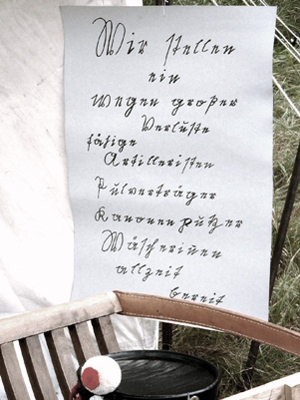 Wir stellen
ein
wegen großer
Verlüste
fähige
Artilleristen
Pülverträger
Kanonenpützer
Wäscherinen
allzeit
bereit